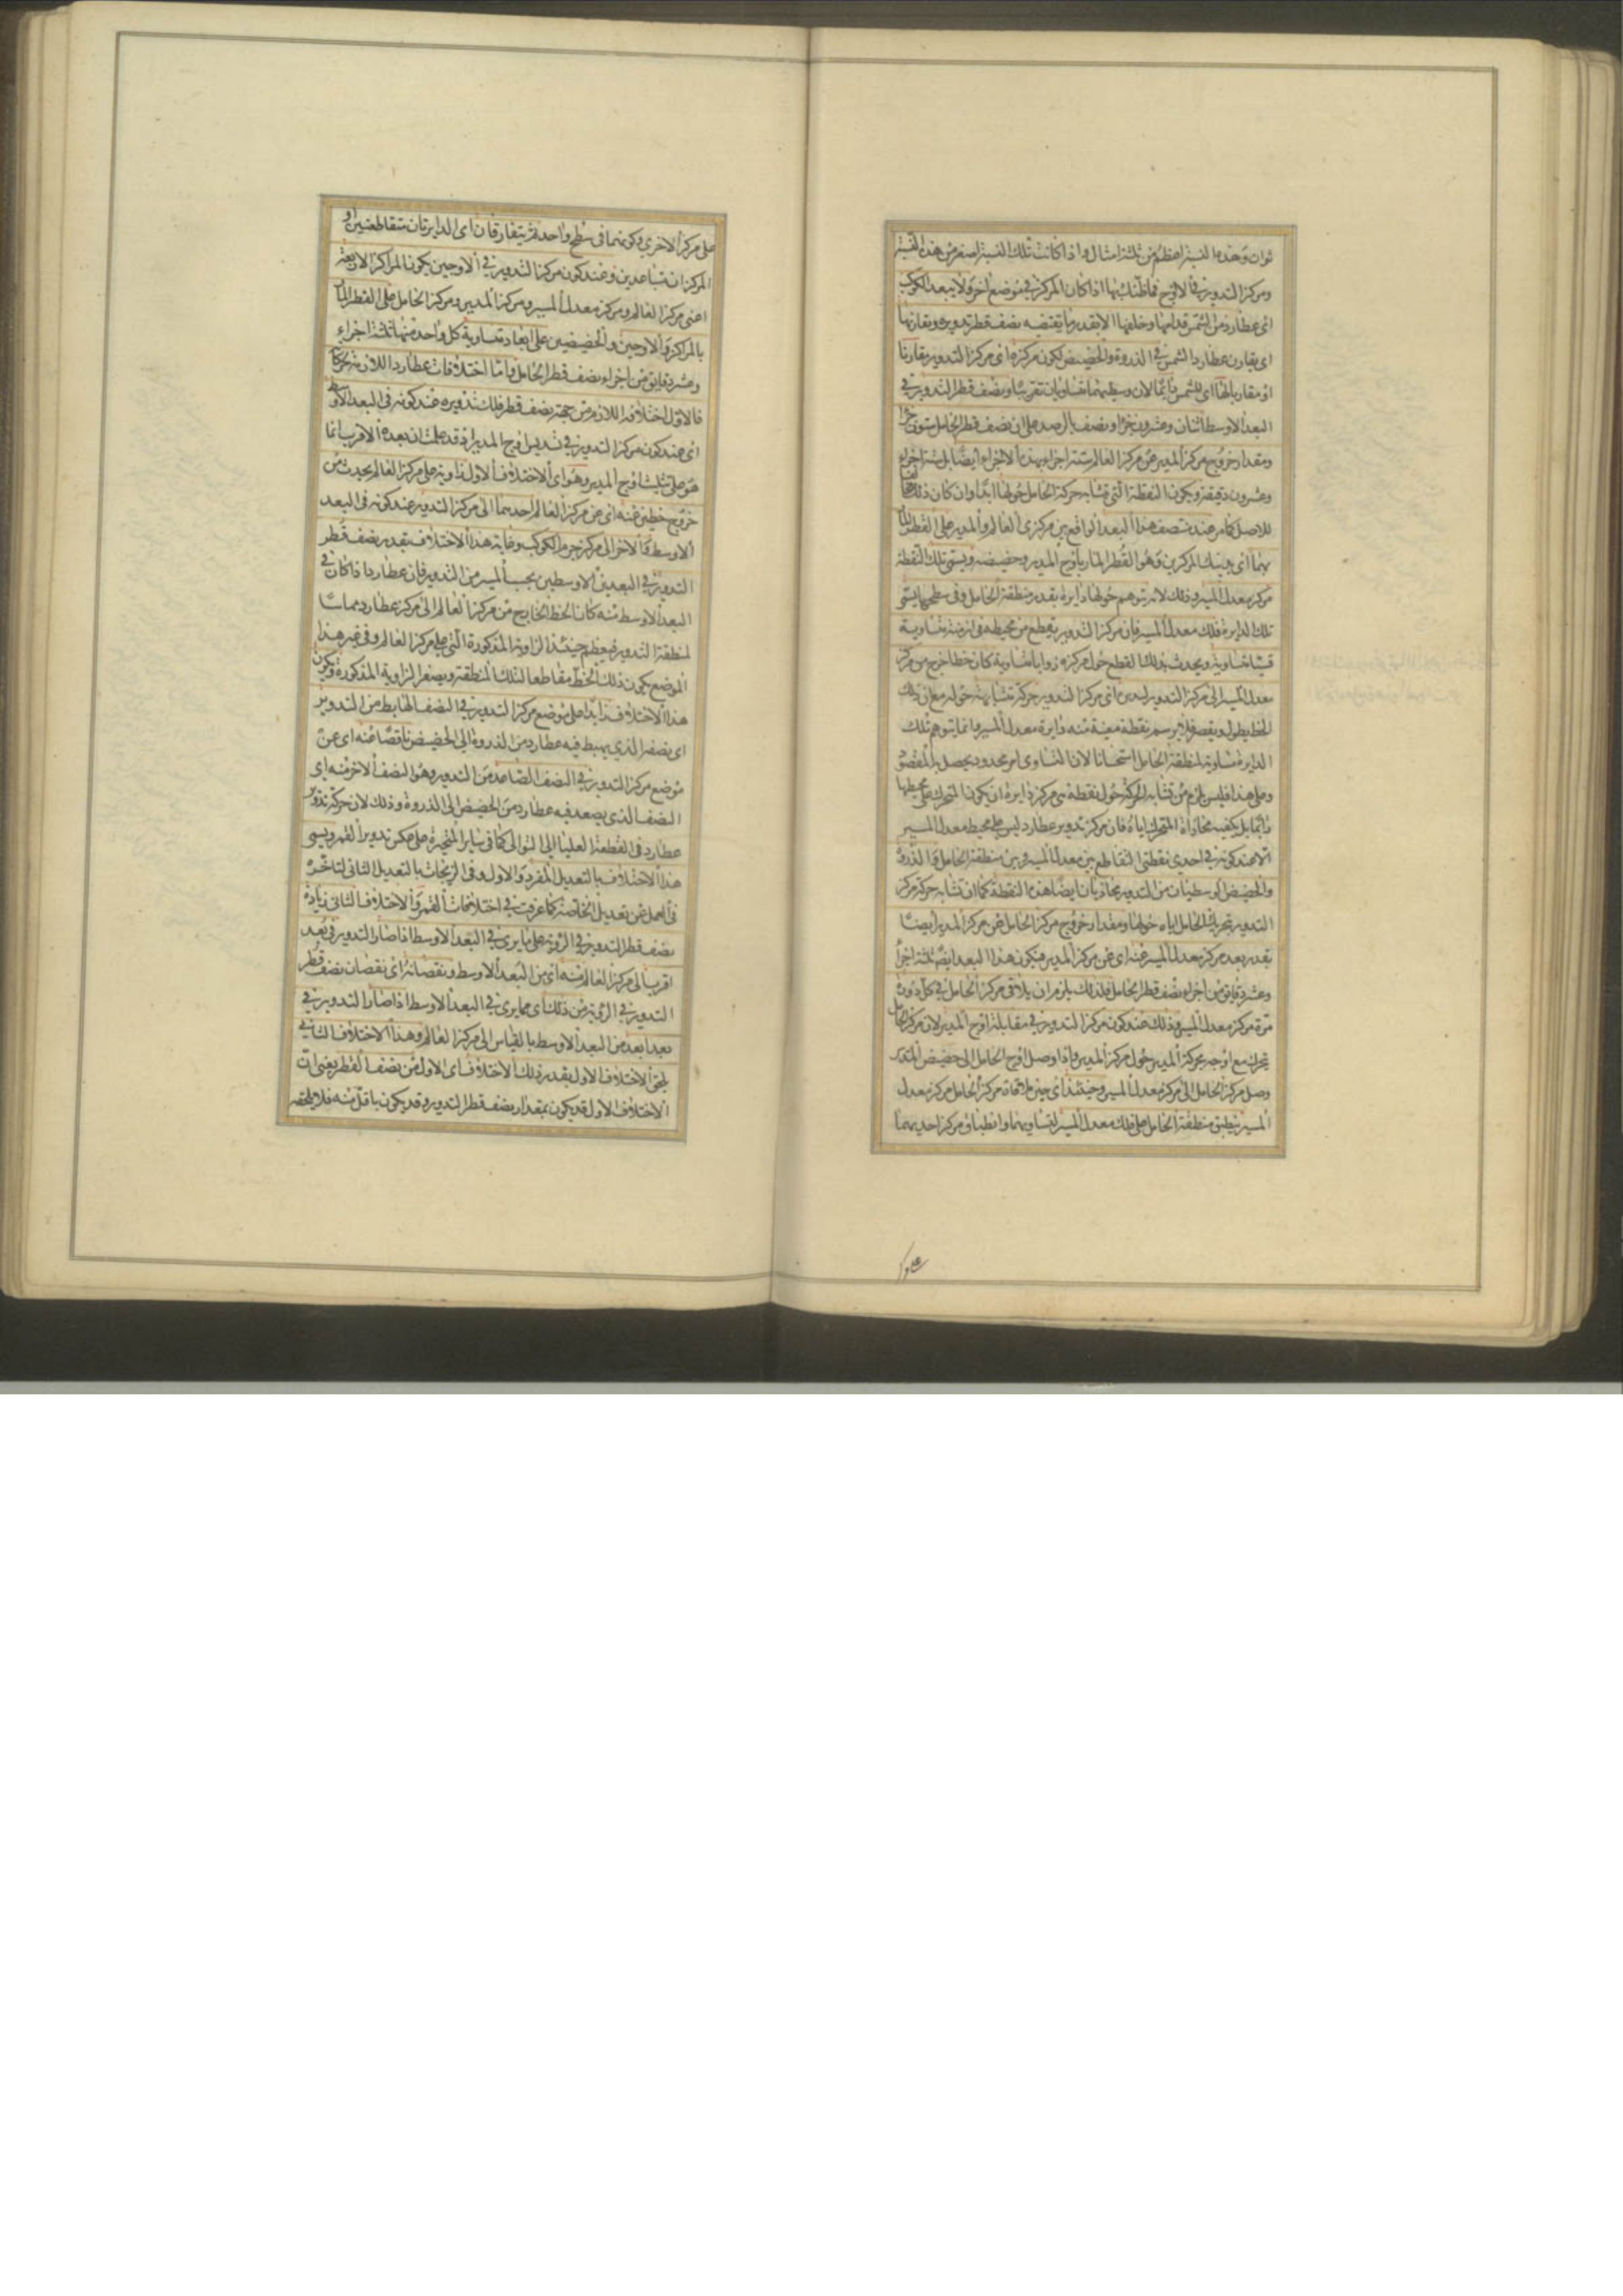 ثوان وهذه النسبة اعظم من ثلثة امثال واذا كانت تلك النسبة اصغر من هذه النسبة
ومركز التدوير في الاوج فما ظنك بها اذا كان المركز في موضع اخر ولا يبعد الكوكب
اى عطارد من الشمس قدامها وخلفها الا بقدر ما يقتضيه نصف قطر تدويره ويقارنها
اى يقارن عطارد الشمس في الذروة والحضيض لكون مركزه اى مركز التدوير مقارنا
او مقاربا لها اى للشمس دائما لان وسطيهما متساويان تقريبا ونصف قطر التدوير في
البعد الاوسط اثنان وعشرون جزءا ونصف بالرصد على ان نصف قطر الحامل ستون جزءا
ومقدار خروج مركز المدير عن مركز العالم ستة اجزاء بهذه الاجزاء ايضا بل ستة اجزاء
وعشرون دقيقة ويكون النقطة التى تتشابه حركة الحامل حولها ابدا وان كان ذلك
للاصل كما مر عند منتصف هذا البعد الواقع بين مركزى العالم والمدير على القطر المار
بهما اى بذينك المركزين وهو القطر المار باوج المدير وحضيضه ويسمى تلك النقطة
مركز معدل المسير وذلك لانه يتوهم حولها دايرة بقدر منطقة الحامل وفى سطحها يسمى
تلك الدايرة فلك معدل المسير فان مركز التدوير يقطع من محيطه فى ازمنة متساوية
قسيا متساوية ويحدث بذلك القطع حول مركزه زوايا متساوية كان خطا خرج من مركز
معدل المسير الى مركز التدوير ليدير اى مركز التدوير حركة متشابهة حوله مع ان ذلك
الخط يطول ويقصر فلا يرسم نقطة معينة منه دايرة معدل المسير وانما يتوهم تلك
الدايرة مساوية لمنطقة الحامل استحسانا لان التساوى امر محدود يحصل به المقصود
وعلى هذا فليس يلزم من تشابه الحركة حول نقطة هى مركز دايرة ان يكون المتحرك على محيطها
دائما بل يكفيه محاذاة المتحرك اياه فان مركز تدوير عطارد ليس على محيط معدل المسير
الا عند كونه في احدى نقطتى التقاطع بين معدل المسير وبين منطقة الحامل والذروة
والحضيض الوسطيان من التدوير يحاذيان ايضا هذه النقطة كما ان تشابه حركة مركز
التدوير بتحريك الحامل اياه حولها ومقدار خروج مركز الحامل عن مركز المدير ايضا
بقدر بعد مركز معدل المسير عنه اى عن مركز المدير فيكون هذا البعد ايضا ثلثة اجزاء
وعشر دقايق من اجزاء نصف قطر الحامل فلذلك يلزم ان يلاقى مركز الحامل في كل دورة
مرة مركز معدل المسير وذلك عند كون مركز التدوير في مقابلة اوج المدير لان مركز الحامل
يتحرك مع اوجه بحركة المدير حول مركز المدير فاذا وصل اوج الحامل الى حضيض المدير
وصل مركز الحامل الى مركز معدل المسير وحينئذ اى حين ملاقاة مركز الحامل مركز معدل
المسير ينطبق منطقة الحامل على فلك معدل المسير لتساويهما وانطباق مركز احديهما
على مركز الاخرى وكونهما فى سطح واحد ثم يتفارقان اى الدايرتان متقاطعتين او
المركزان متباعدين وعند كون مركز التدوير في الاوجين يكون المراكز الاربعة
اعنى مركز العالم ومركز معدل المسير ومركز المدير ومركز الحامل على القطر المار
بالمراكز والاوجين والحضيضين على ابعاد متساوية كل واحد منها ثلثة اجزاء
وعشر دقايق من اجزاء نصف قطر الحامل واما اختلافات عطارد اللازمة
فالاول اختلافه اللازم من جهة نصف قطر فلك تدويره عند كونه فى البعد الاوسط
اى عند كون مركز التدوير في تسديس اوج المدير اذ قد علمت ان بعده الاقرب انما
هو على تثليث اوج المدير وهو اى الاختلاف الاول زاوية على مركز العالم يحدث من
خروج خطين عنه اى عن مركز العالم احدهما الى مركز التدوير عند كونه فى البعد
الاوسط والاخر الى مركز جرم الكوكب وغاية هذا الاختلاف بقدر نصف قطر
التدوير في البعدين الاوسطين بحسب المسير من التدوير فان عطاردا اذا كان في
البعد الاوسط منه كان الخط الخارج من مركز العالم الى مركز عطارد مماسا
لمنطقة التدوير فيعظم حينئذ الزاوية المذكورة التى على مركز العالم وفى غير هذا
الموضع يكون ذلك الخط مقاطعا لتلك المنطقة ويصغر الزاوية المذكورة ويكون
هذا الاختلاف زايدا على موضع مركز التدوير في النصف الهابط من التدوير
اى نصفه الذى يهبط فيه عطارد من الذروة الى الحضيض ناقصا عنه اى عن
موضع مركز التدوير في النصف الصاعد من التدوير وهو النصف الاخر منه اى
النصف الذى يصعد فيه عطارد من الحضيض الى الذروة وذلك لان حركة تدوير
عطارد فى القطعة العليا الى التوالى كما فى ساير المتحيرة على عكس تدوير القمر ويسمى
هذا الاختلاف بالتعديل المفرد والاول وفى الزيجات بالتعديل الثانى لتاخره
فى العمل عن تعديل الخاصة كما عرفت في اختلافات القمر والاختلاف الثانى زيادة
نصف قطر التدوير في الرؤية على ما يرى في البعد الاوسط اذا صار التدوير فى بعد
اقرب الى مركز العالم منه اى من البعد الاوسط ونقصانه اى نقصان نصف قطر
التدوير في الرؤية من ذلك اى مما يرى في البعد الاوسط اذا صار التدوير في
بعد ابعد من البعد الاوسط بالقياس الى مركز العالم وهذا الاختلاف الثانى
يلحق الاختلاف الاول بقدر ذلك الاختلاف اى الاول من نصف القطر يعنى ان
الاختلاف الاول قد يكون بمقدار نصف قطر التدوير وقد يكون باقل منه فلا يلحقه